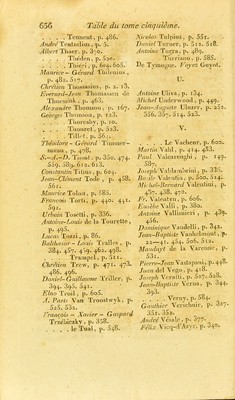 656 Table du tome cinquième.
. . . . Tennent, p. 486.
André Tentedius, p. 5.
Albert Thaer, p. 350.
. . . . Théden, p. 520.
. . . . Théri, p. 604. 605.
Maurice-Gérard Thilenius,
p. 482. 517.
Chrétien Thomasius, p. 13.
Everard-Jean Thomassen de
Thuessink, p. 463.
Alexandre Thomson, p. 167.
George Thomson, p. 123.
. . . . Thoresby, p. 10.
. . . . Thouret, p. 523.
. . . . Tillet, p. 561.
Théodore-Gérard Timmermann,
p. 478.
Tissot, p. 350. 474.
559. 589. 612. 613.
Constantin Titius, p. 604.
Jean-Clément Tode, p. 458.
561.
Maurice Tolan, p. 585.
François Torti, p. 440. 441.
592.
Urbain Tosetti, p. 336.
Antoine-Louis de la Tourette,
p. 405.
Lucas Tozzi, p. 86.
Balthasar-Louis Tralles, p.
384. 457. 459. 462. 498.
. . . . Trampel, p. 511.
Chrétien Trew, p. 471. 473.
486. 496.
Daniel-Guillaume Triller, p.
394. 395. 541.
Elno Troil, p. 605.
A. Paets Van Troostwyk, p.
525. 531.
François-Xavier-Gaspard
Trzebizky, p. 358.
. . . . le Tual, p. 548.
Nicolas Tulpius, p. 551.
Daniel Turner, p. 512. 518.
Antoine Turra, p. 489.
. . . . Turriano, p. 585.
De Tymogue. Voyez Guyot.
U.
Antoine Uliva, p. 134.
Michel Underwood, p. 449.
Jean-Auguste Unzer, p. 252.
556. 357. 514. 523.
V.
. . . . Le Vacheur, p. 602.
Martin Vahl, p. 474. 483.
Paul Valcarenghi, p. 149.
587.
Joseph Valdambrini, p. 336.
Basile Valentin, p. 500. 514.
Michel-Bernard Valentini, p.
437. 438. 470.
Fr. Valenten, p. 606.
Eusèbe Valli, p. 380.
Antoine Vallisnieri, p. 439.
456.
Dominique Vandelli, p. 342.
Jean-Baptiste Vanhelmont, p.
22—41. 454. 506. 512.
Mauduyt de la Varenne, p.
531.
Pierre-Jean Vastapani, p. 448.
Juan del Vego, p. 418.
Joseph Veratti, p. 357. 528.
Jean-Baptiste Verna, p. 344.
393.
. . . . Verny, p. 584.
Gauthier Verschuir, p. 327.
351. 352.
André Vésale, p. 377.
Félix Vicq-d'Azyr, p. 340.